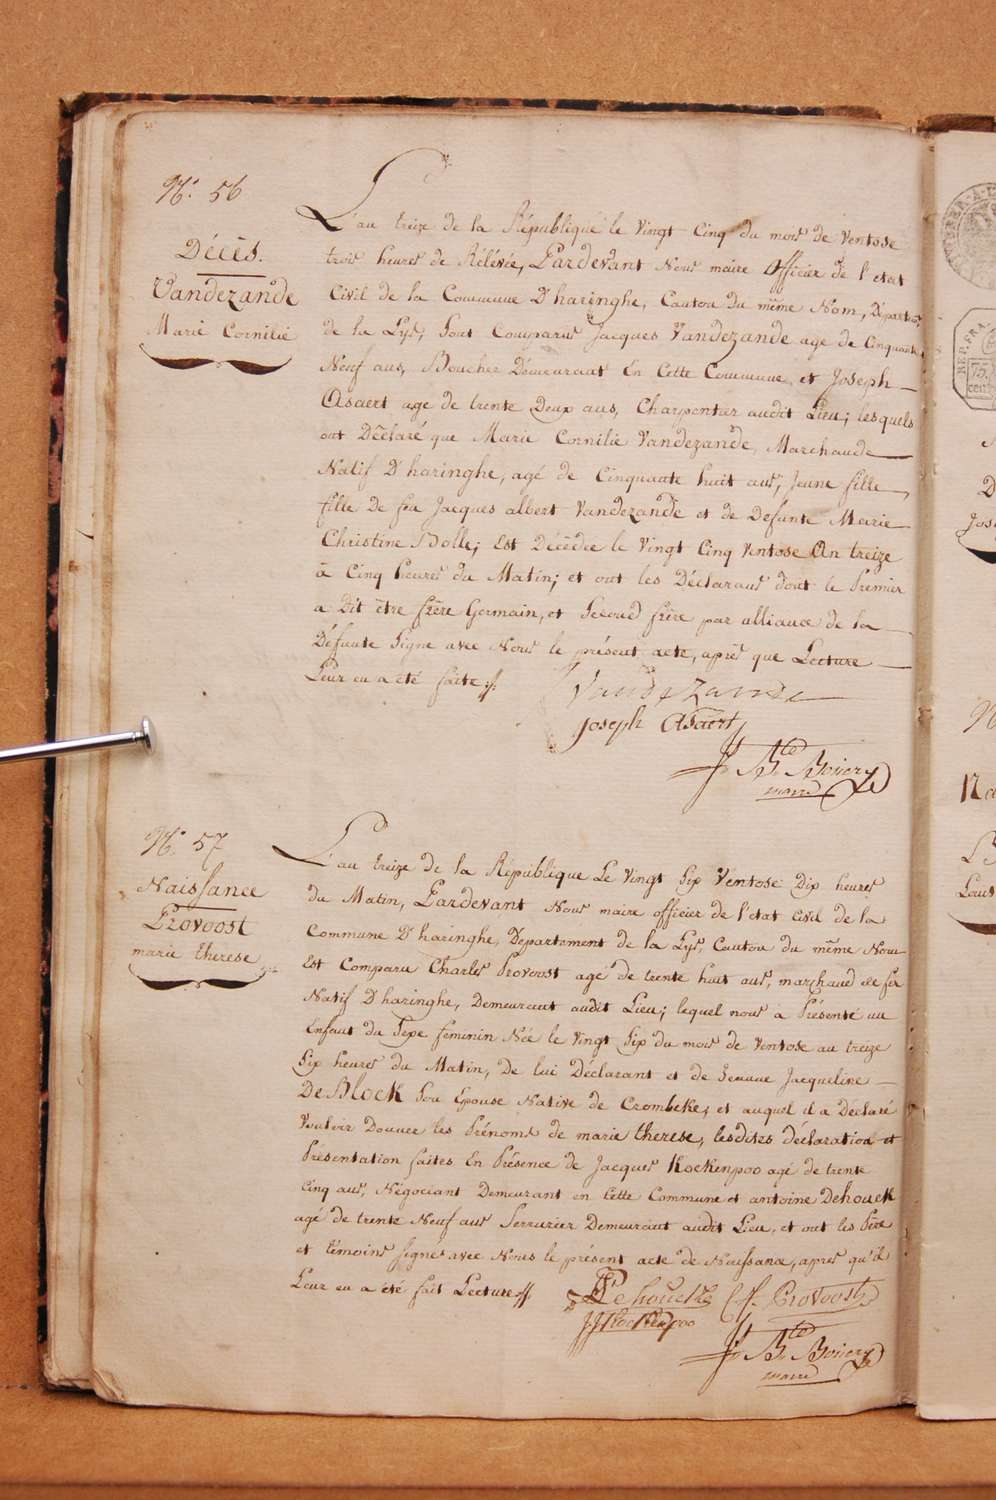 N.º 56
Décès.
Vandezande
Marie Cornilie
L'an treize de la République le vingt Cinq du mois de Ventose
trois heures de Rélévée, Pardevant Nous maire officier de l'etat
Civil de la Commune D'haringhe, Canton du même Nom, Départem.
de la Lys, Sont Comparus Jacques Vandezande age de Cinquante
Neuf ans, Boucher Demeurant En Cette Commune, et Joseph
Asaert age de trente Deux ans, Charpentier audit Lieu; lesquels
ont Déclaré que Marie Cornilie Vandezande, Marchande
Natif D'haringhe, agé de Cinquante huit ans, Jeune fille,
fille de feu Jacques albert Vandezande et de Defunte Marie
Christine Bolle; Est Décédée le Vingt Cinq Ventose An treize
à Cinq heures du Matin; et ont les Déclarans dont le Premier
a Dit être frère Germain, et Second frère par alliance de la
Défunte Signe avec Nous le présent acte, après que Lecture
Leur en a été faite.
Vandezande
Joseph Asaert
J. Bte Boiery
maire
N.º 57
Naissance
Provoost
marie therese
L'an treize de la République Le Vingt Six Ventose Dix heures
du Matin, Pardevant Nous maire officier de l'etat Civil de la
Commune D'haringhe, Département de la Lys, Canton du même Nom
Est Comparu Charles Provoost agé de trente huit ans, marchand de fer
Natif D'haringhe, Demeurant audit Lieu; lequel nous à Présenté un
Enfant du Sexe féminin Née le Vingt Six du mois de Ventose an treize
Six heures du Matin, de lui Déclarant et de Jacqueline
De Block Son Epouse Native de Crombeke, et auquel il a Déclaré
Vouloir Donner les Prénoms de marie therese, lesdites déclaration et
Présentation faites En Présence de Jacques Kockenpoo agé de trente
cinq ans, Négociant Demeurant en Cette Commune et antoine Dehouck
agé de trente Neuf ans Serrurier Demeurant audit Lieu, et ont les Père
et témoins signés avec Nous le présent acte de Naissance, apres qu'il
Leur en a été fait Lecture
Dehoucke Ch. Provoost
JJ Kockenpoo
J. Bte Boiery
maire